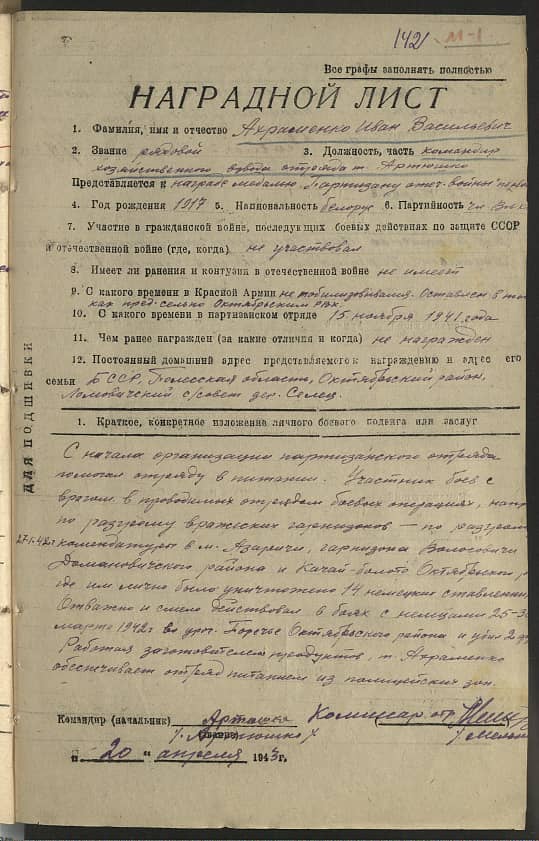 142 М-1
Все графы заполнять полностью
НАГРАДНОЙ ЛИСТ
1. Фамилия, имя и отчество Ахраменко Иван Васильевич
2. Звание рядовой 3. Должность, часть командир
хозяйственного взвода отряда т. Артюшко
Представляется к награде медалью "Партизану отеч. войны"
4. Год рождения 1917 5. Национальность белорус 6. Партийность чл.
7. Участие в гражданской войне, последующих боевых действиях по защите СССР
и отечественной войне (где, когда) не участвовал
8. Имеет ли ранения и контузии в отечественной войне не имеет
9. С какого времени в Красной Армии не мобилизовывался. Оставлен в
пред. сельпо Октябрьским
10. С какого времени в партизанском отряде 15 ноября 1941 года
11. Чем ранее награжден (за какие отличия и когда) не награжден
12. Постоянный домашний адрес представляемого к награждению и адрес его
семьи БССР, Полесская область, Октябрьский район,
Ломовичский с/совет дер. Селец.
ДЛЯ ПОДШИВКИ
1. Краткое, конкретное изложение личного боевого подвига или заслуг
С начала организации партизанского отряда
помогал отряду в питании. Участник боев с
врагом в проводимых отрядом боевых операциях,
по разгрому вражеских гарнизонов — по
27-1-42г комендатуры в м. Азаричи, гарнизона Волосовичи
Домановичского района и Качай-болото Октябрьского
где им лично было уничтожено 14 немецких
Отважно и смело действовал в боях с немцами
марта 1942г во урос. Поречье Октябрьского района и убил 2
Работая заготовителем продуктов, т. Ахраменко
обеспечивает отряд питанием из полицейских зон.
Командир (начальник) Артюшко Комиссар отр.
/Артюшко/
(звание)
"20" апреля 1943г.